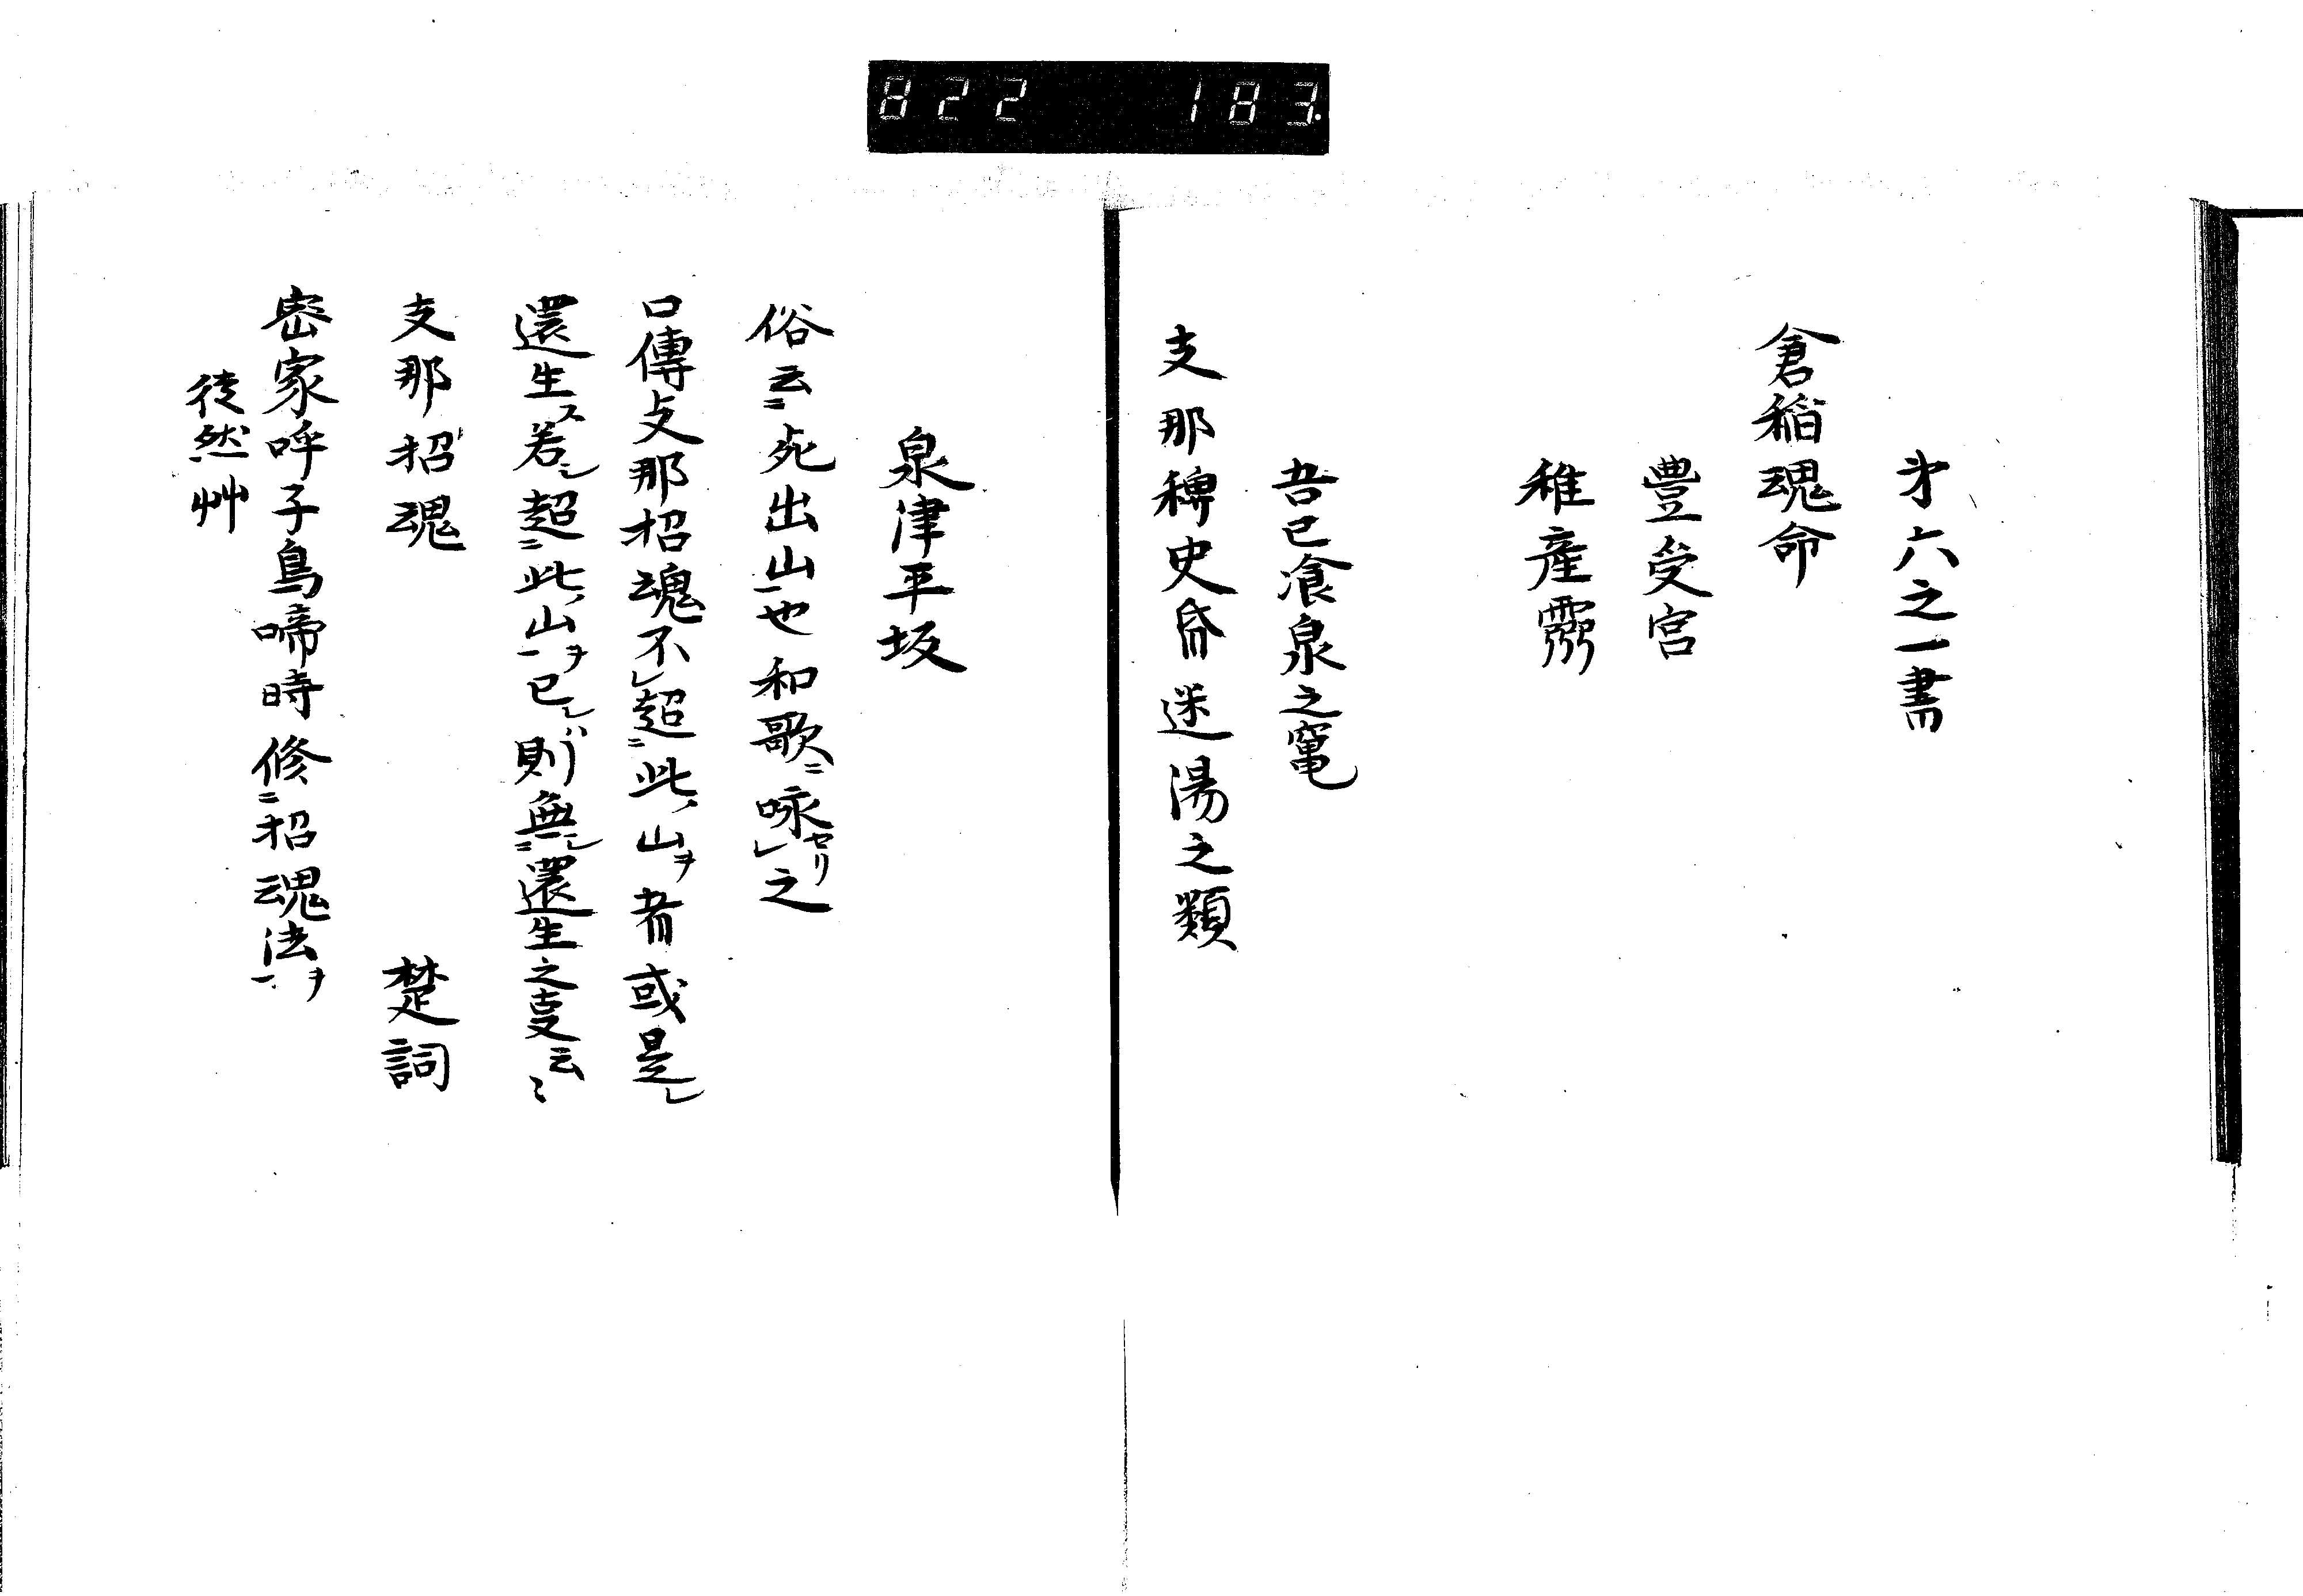 822 183.
㐧六之一書
倉稲魂命
豊受宮
稚産霊
吾已飡泉之竃
支那稗史昏迷湯之類
泉津平坂
俗云㆓死出山㆒也和歌㆓咏セリ㆑之
口傳支那招魂不㆑超㆓此ノ山ヲ者或是レ
還生ス若シ超㆓此ノ山ヲ㆒已レバ則無シ㆓還生之叓云〻
支那招魂 楚詞
密家呼子鳥啼時修㆓招魂法ヲ㆒
徒然艸